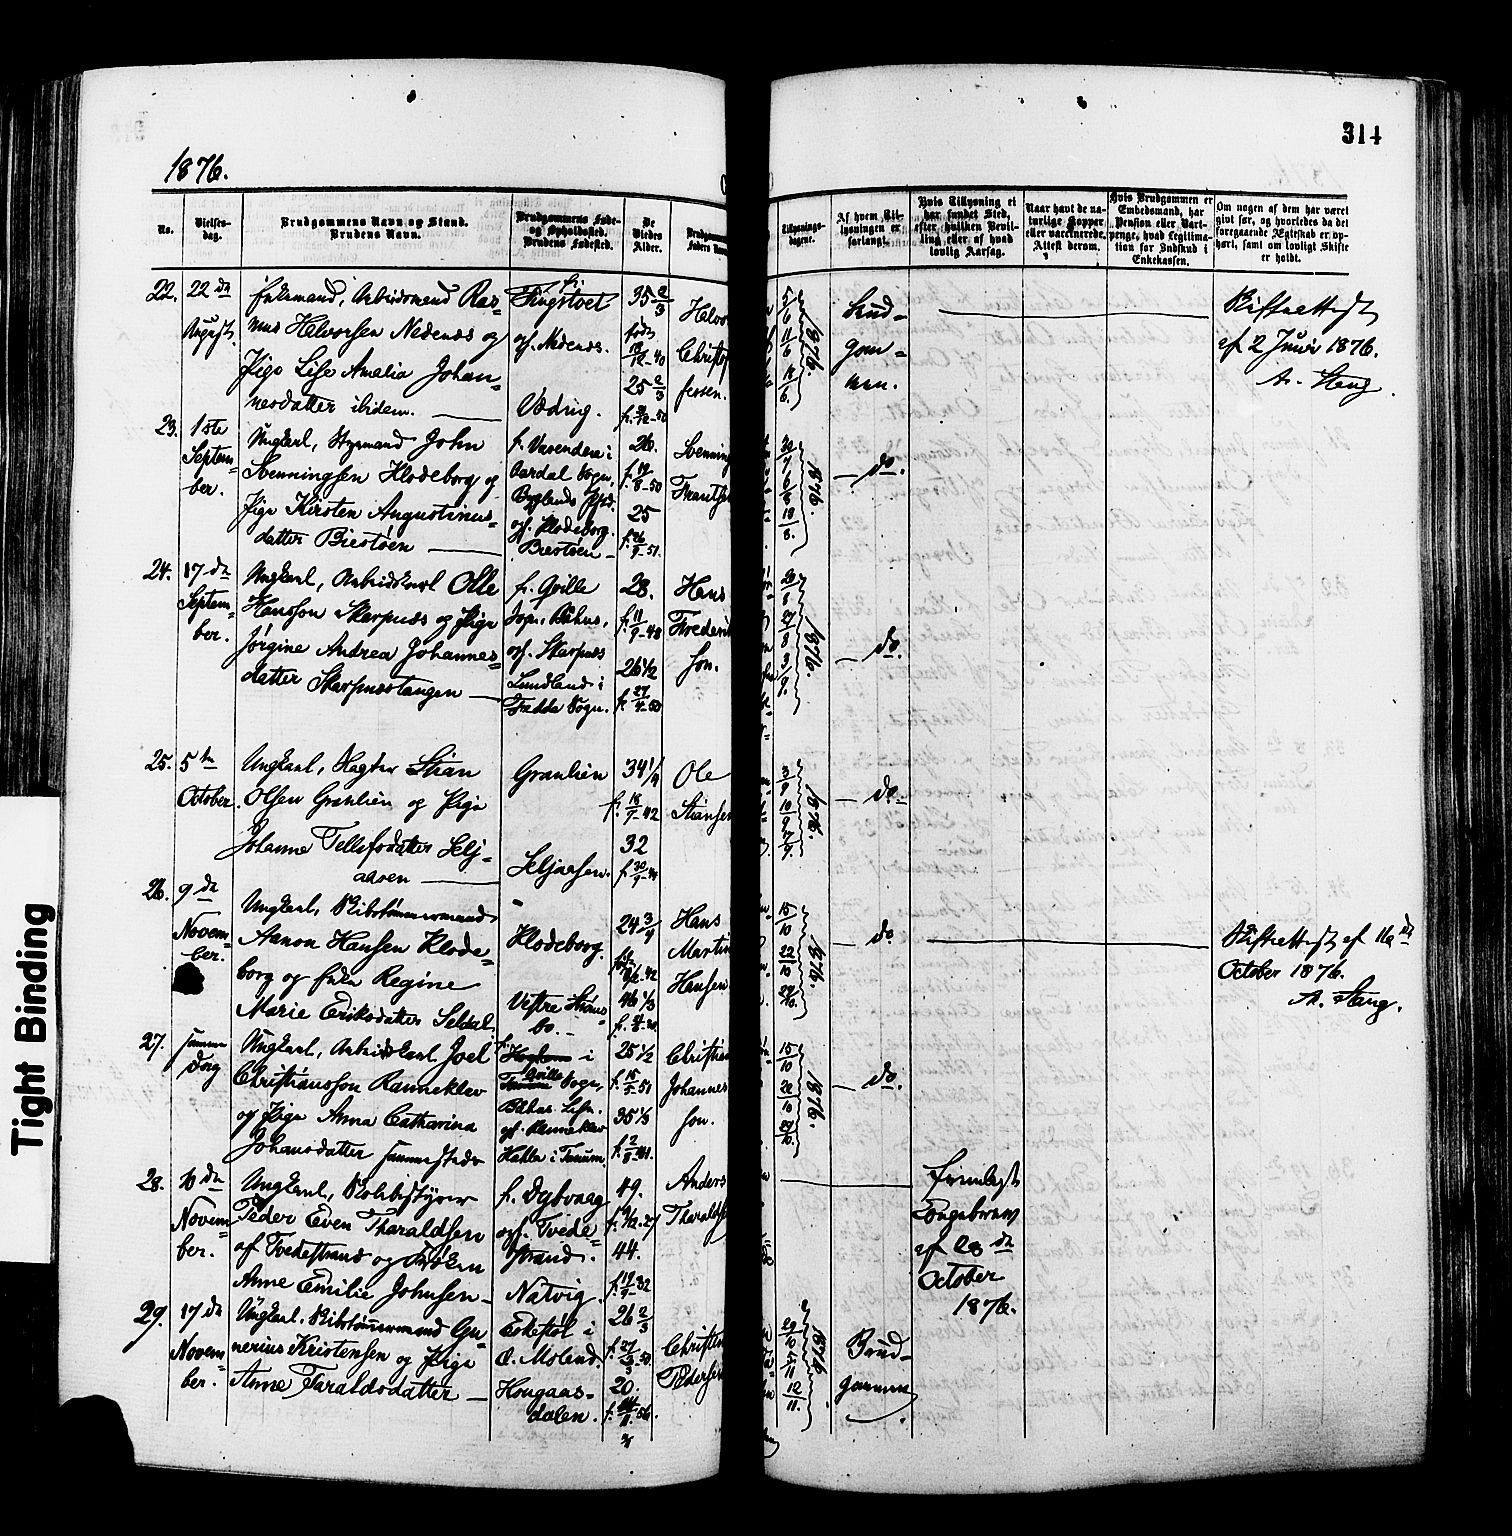 314
1876.
No.
Vielses-
dag.
Brudgommens Navn og Stand.
Brudens Navn.
Brudgommens Føde-
og Opholdssted.
Brudens Fødested.
De
Viedes
Alder.
Brudgomm
Faders Navn
Tillysnings-
dagene.
Af hvem Til-
lysningen er
forlangt.
Hvis Tillysning ei
har fundet Sted,
efter hvilken Bevil-
ling eller af hvad
lovlig Aarsag.
Naar havt de na-
turlige Kopper
eller vaccinerede,
Attest derom.
Hvis Brudgommen er
Embedsmand, har
Pension eller Vart-
penge, hvad Legitima-
tion for Indskud i
Enkekassen.
Om nogen af dem har været
givt før, og hvorledes da det
foregaaende Ægteskab er op-
hørt, samt om lovligt Skifte
er holdt.
22.
22 de
August.
Enkemand, Arbeidsmand Ras-
mus Helvorsen Nedenes og
Pige Lise Amalia Johan-
nesdatter ibidem.
f.
Tingstvet
og Nedenes.
35 2/3
født
25 2/3
Helvo
Christop
fersen.
5/6
11/6
1876.
Brud-
gom-
men.
Skifteattest
af 2 Juni 1876.
A. Stang
23.
1ste
Septem-
ber.
Ungkarl, Styrmand John
Svenningsen Klodeborg og
Pige Kirsten Augustinus-
datter Biestøen
f. Vasenden i
Aardal Sogn,
Byglands Pgd.
of. Klodeborg.
Biestøen
26.
f. 19/8-50
25
Svenning
1876.
do.
24.
17 de
Septem-
ber.
Ungkarl, Arbeidskarl Olle
Hansson Skarpnes og Pige
Jørgine Andrea Johannes-
datter Skarpnestangen
f. Qville
Sogn, Båhus,
of. Skarpnes
Lundland i
Fedde Sogn.
28.
f. 11/9-48
26 1/2
f. 27/4-50
Hans
Frederik
son.
20/8
27/8
3/9.
1876.
do.
25.
5te
October.
Ungkarl, Stian
Olsen Granlien og Pige
Johanne Tellefsdatter Selj-
aasen
Granlien
Seljaasen.
34 1/4
32
Ole
Stiansen
3/9
10/9
17/9.
1876.
do
26.
9 de
Novem-
ber.
Ungkarl, Skibstømmermand
Aanon Hansen Klode-
borg og Enke Regine
Marie Eriksdatter Seldal.
Klodeborg.
Vestre
24 3/4
46 1/3
Hans
Martin
Hansen
15/10
22/10
29/10.
1876.
do
Skifteattest af 16 de
October 1876.
A. Stang.
27.
samme
Dag
Ungkarl, Arbeidskarl Joel
Christiansson Ranneklev
og Pige Anna Catharina
Johansdatter sammesteds
i
Qville Sogn,
Båhus Lehn.
of. Ranneklev
i Tanum.
25 1/2
f. 15/5-51
35 1/3
Christian
Johannes
son.
15/10
22/10
29/10.
1876.
do.
28.
10 de
Novem-
ber.
Ungkarl,
Peder Even Tharaldsen
af Tvedestrand og Frøken
Anne Emilie Johnsen
f. Dybvaag
of. Tvede-
strand.
Natvig.
49.
44.
f. 19/9-32
Anders
Tharalds
Kongebrev
af 28 de
October
1876.
29.
17 de
Novem-
ber.
Ungkarl. Skibstømmermand Gu-
nerius Kristensen og Pige
Anne Taraldsdatter
Eskestøl i
Ø. Moland.
Hougaas-
dalen.
26 2/3
20.
Christen
Pedersen
29/10
12/11.
1876.
Brud-
gommen
Tight Binding